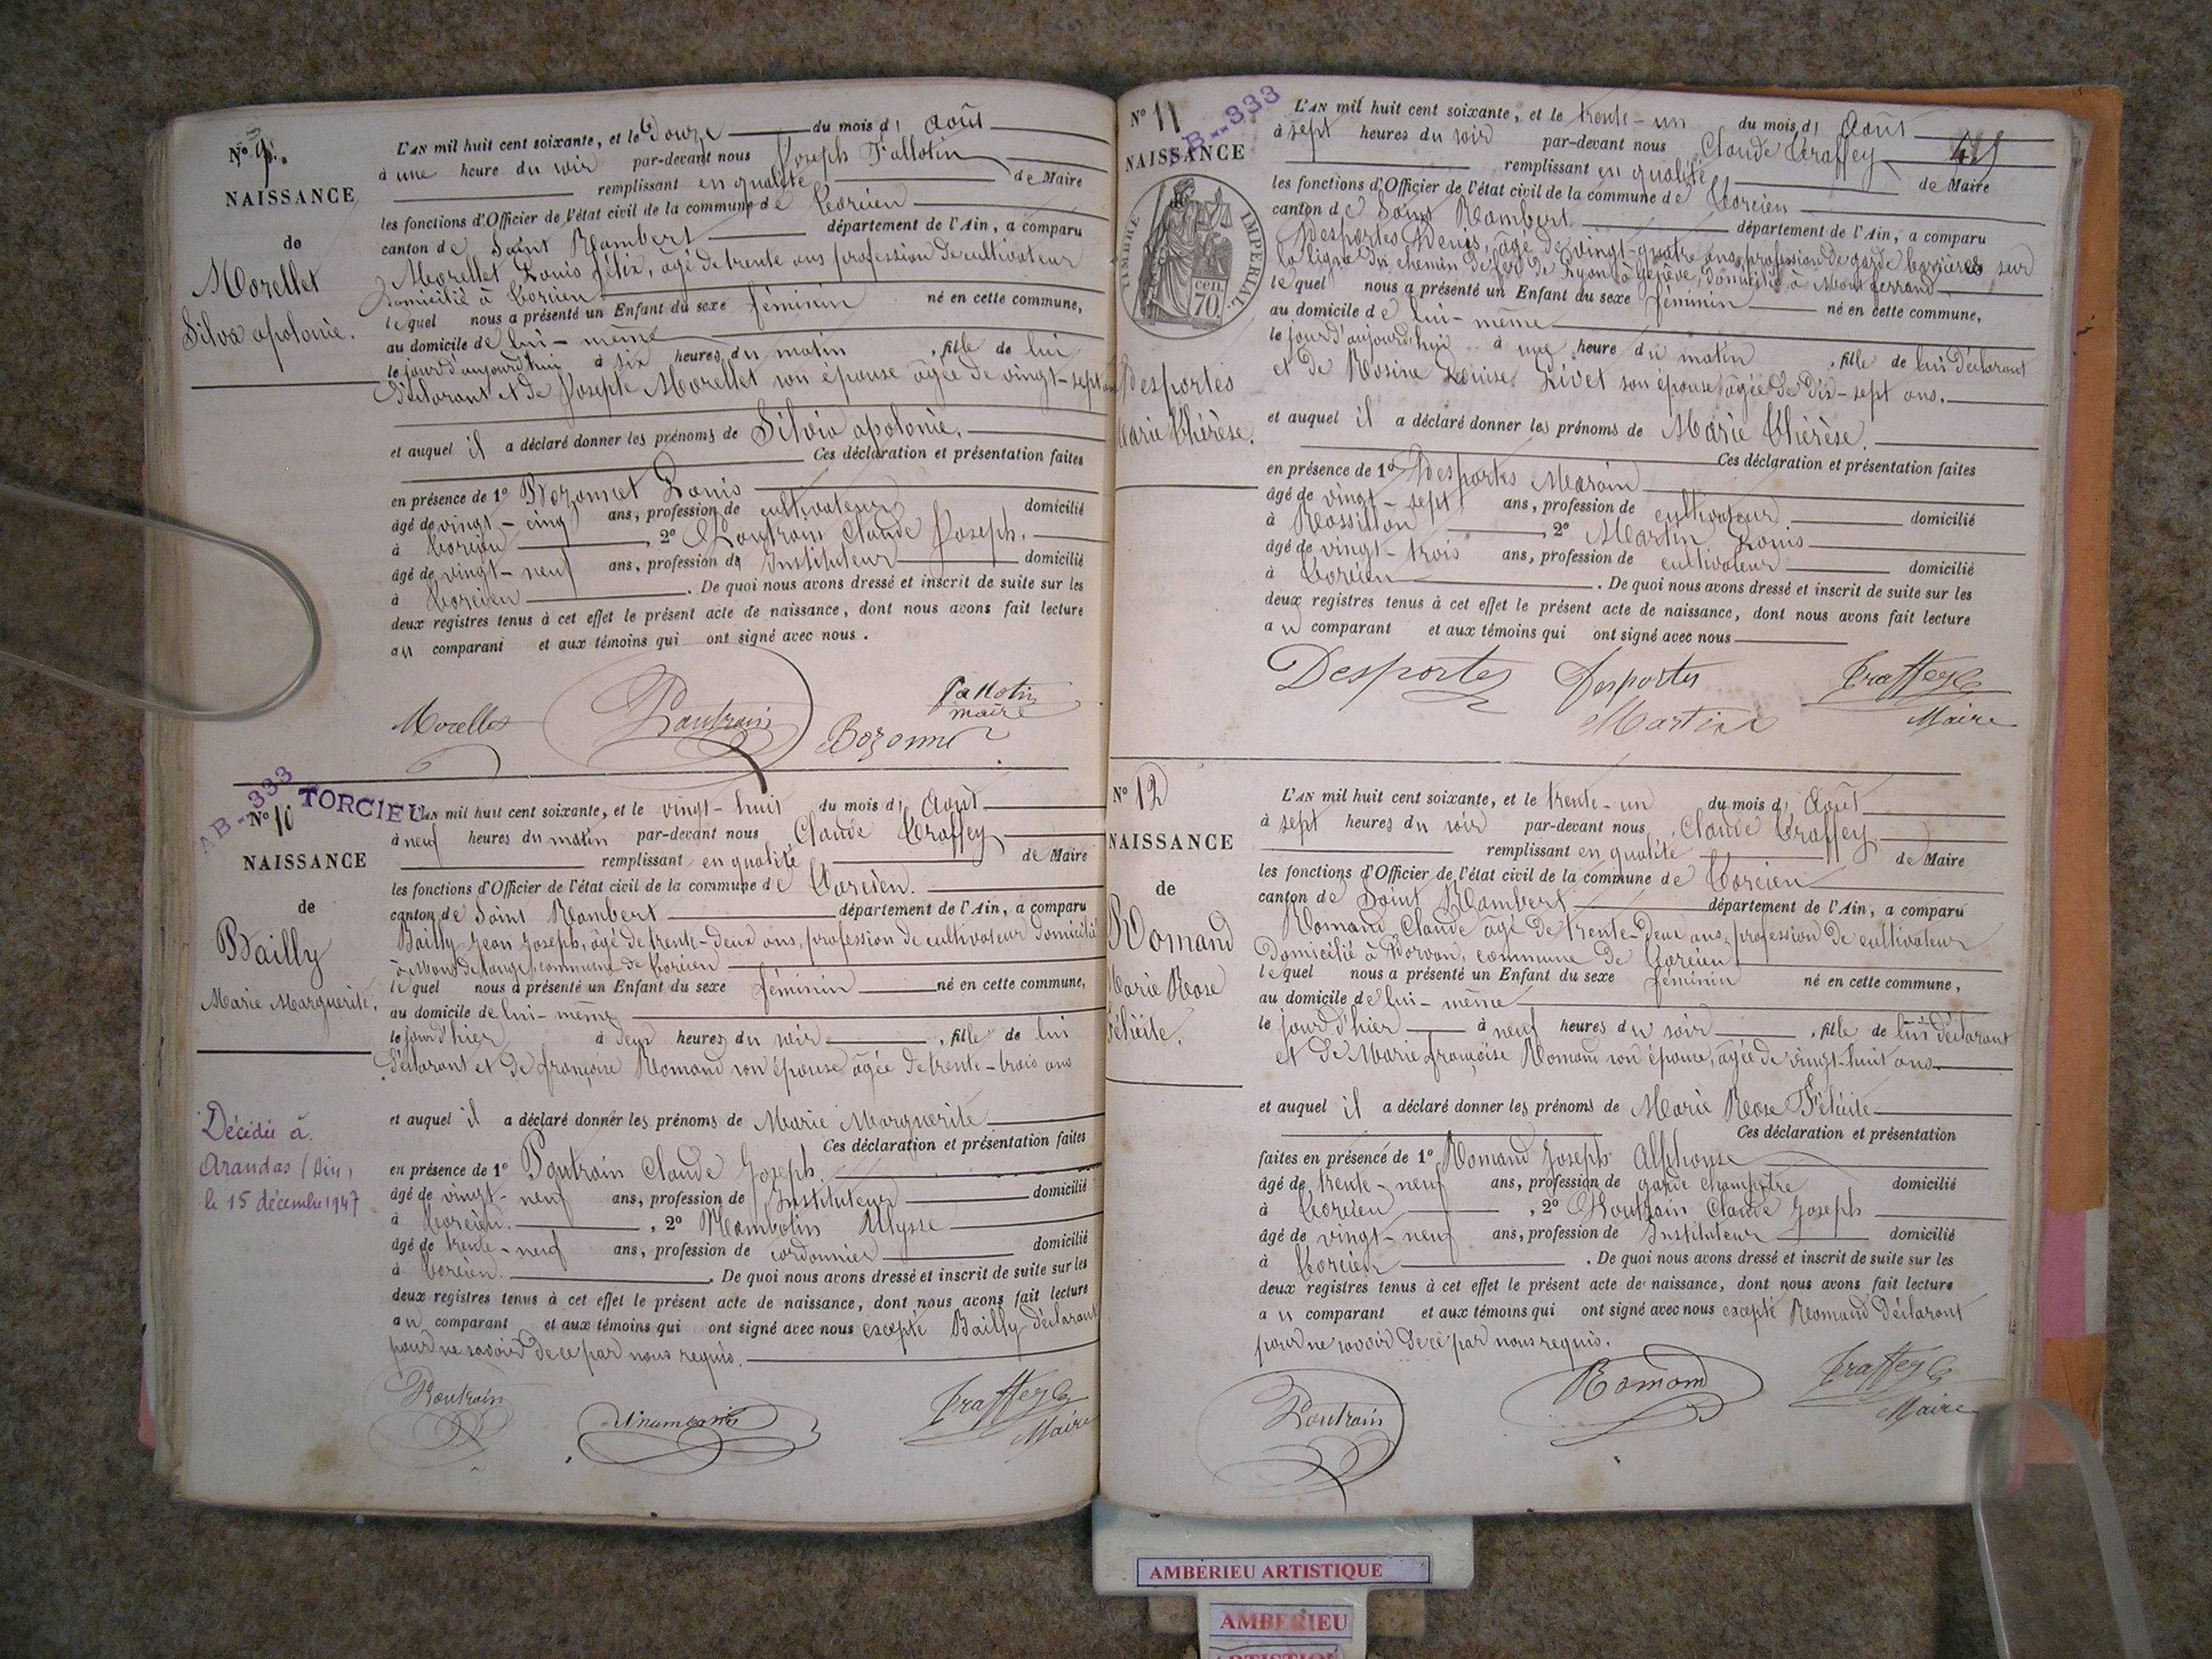 N° 9.
NAISSANCE
de
Morellet
Silva apolonie.
L'AN mil huit cent soixante, et le douze du mois d' Août
à une heure du soir par-devant nous Joseph Tallotin
remplissant en qualité de Maire
les fonctions d'Officier de l'état civil de la commune de Torcieu
canton de Saint Rambert département de l'Ain, a comparu
Morellet Louis félix, âgé de trente ans profession de cultivateur
domicilié à Torcieu
lequel nous a présenté un Enfant du sexe féminin né en cette commune,
au domicile de lui-même
le jour d'aujourd'hui à six heures du matin, fille de lui
déclarant et de Josepte Morellet son épouse âgée de vingt-sept ans
et auquel il a déclaré donner les prénoms de Silvia apolonie.
Ces déclaration et présentation faites
en présence de 1° Bozonnet Louis
âgé de vingt-cinq ans, profession de cultivateur domicilié
à Torcieu, 2° Poutrain Claude Joseph.
âgé de vingt-neuf ans, profession de Instituteur domicilié
à Torcieu. De quoi nous avons dressé et inscrit de suite sur les
deux registres tenus à cet effet le présent acte de naissance, dont nous avons fait lecture
au comparant et aux témoins qui ont signé avec nous.
Morellet Poutrain Bozonnet Tallotin
maire
AB-333 TORCIEU
N° 10
NAISSANCE
de
Bailly
Marie Marguerite.
Décédée à
Arandas (Ain)
le 15 décembre 1947
L'AN mil huit cent soixante, et le vingt-huit du mois d' Août
à neuf heures du matin par-devant nous Claude Traffey
remplissant en qualité de Maire
les fonctions d'Officier de l'état civil de la commune de Torcieu.
canton de Saint Rambert département de l'Ain, a comparu
Bailly Jean Joseph, âgé de trente-deux ans, profession de cultivateur domicilié
à commune de Torcieu
lequel nous a présenté un Enfant du sexe féminin né en cette commune,
au domicile de lui-même
le jour d'hier à deux heures du soir, fille de lui
déclarant et de françoise Romand son épouse âgée de trente-trois ans
et auquel il a déclaré donner les prénoms de Marie Marguerite
Ces déclaration et présentation faites
en présence de 1° Poutrain Claude Joseph.
âgé de vingt-neuf ans, profession de Instituteur domicilié
à Torcieu., 2° Ulysse
âgé de trente-neuf ans, profession de cordonnier domicilié
à Torcieu. De quoi nous avons dressé et inscrit de suite sur les
deux registres tenus à cet effet le présent acte de naissance, dont nous avons fait lecture
au comparant et aux témoins qui ont signé avec nous excepté Bailly déclarant
pour ne savoir de ce par nous requis.
Poutrain Traffey
Maire
N° 11
AB--333
NAISSANCE
TIMBRE IMPERIAL
70 cen.
Desportes
Marie Thérèse.
L'AN mil huit cent soixante, et le trente-un du mois d' Août
à sept heures du soir par-devant nous Claude Traffey
remplissant en qualité de Maire
les fonctions d'Officier de l'état civil de la commune de Torcieu
canton de Saint Rambert département de l'Ain, a comparu
Desportes Denis, âgé de vingt-quatre ans, profession de garde barrières sur
la ligne du chemin de fer de Lyon à Genève, domicilié à Montferrand
lequel nous a présenté un Enfant du sexe féminin né en cette commune,
au domicile de lui-même
le jour d'aujourd'hui à une heure du matin, fille de lui déclarant
et de Rosine Louise Livet son épouse âgée de dix-sept ans.
et auquel il a déclaré donner les prénoms de Marie Thérèse.
Ces déclaration et présentation faites
en présence de 1° Desportes Marain
âgé de vingt-sept ans, profession de cultivateur domicilié
à Rossillon, 2° Martin Louis
âgé de vingt-trois ans, profession de cultivateur domicilié
à Torcieu. De quoi nous avons dressé et inscrit de suite sur les
deux registres tenus à cet effet le présent acte de naissance, dont nous avons fait lecture
au comparant et aux témoins qui ont signé avec nous
Desportes Desportes Traffey
Martin Maire
N° 12
NAISSANCE
de
Romand
Marie Rose
félicité.
L'AN mil huit cent soixante, et le trente-un du mois d' Août
à sept heures du soir par-devant nous Claude Traffey
remplissant en qualité de Maire
les fonctions d'Officier de l'état civil de la commune de Torcieu
canton de Saint Rambert département de l'Ain, a comparu
Romand Claude âgé de trente-deux ans, profession de cultivateur
domicilié à Dorvan, commune de Torcieu
lequel nous a présenté un Enfant du sexe féminin né en cette commune,
au domicile de lui-même
le jour d'hier à neuf heures du soir, fille de lui déclarant
et de Marie françoise Romand son épouse, âgée de vingt-huit ans
et auquel il a déclaré donner les prénoms de Marie Rose Félicité
Ces déclaration et présentation
faites en présence de 1° Romand Joseph Alphonse
âgé de trente-neuf ans, profession de garde champêtre domicilié
à Torcieu, 2° Poutrain Claude Joseph
âgé de vingt-neuf ans, profession de Instituteur domicilié
à Torcieu. De quoi nous avons dressé et inscrit de suite sur les
deux registres tenus à cet effet le présent acte de naissance, dont nous avons fait lecture
au comparant et aux témoins qui ont signé avec nous excepté Romand déclarant
pour ne savoir de ce par nous requis.
Poutrain Romand Traffey
Maire
AMBERIEU ARTISTIQUE
AMBERIEU
ARTISTIQUE